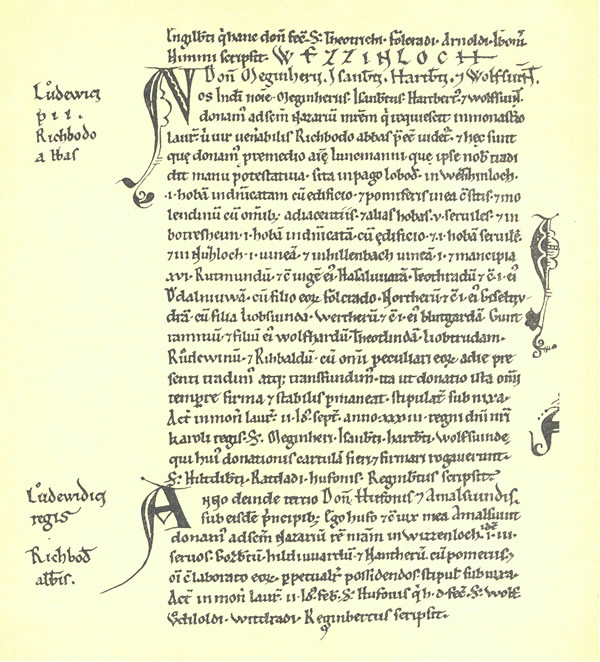 Engilbti q̄ hanc don̄ fec̄. S. Theotrichi. folcradi. Arnoldi. iboni.
Himmi scripsit. WEZZINLOCH
Don̄ Meginherij. Isanbti. Hartbti. ⁊ Wolfsuin̄.
Ludewici
p̄ ii.
Richbodo
abbas
Nos Indī noīe. Meginherus. Isanbtus. Hartbert⁹. ⁊ wolfsuin̄.
donam⁹ ad sēm Nazariū mr̄em q̄ requiescit in monastio
Laur̄. u uir uenabilis Richbodo abbas p̄eē uidet̄. ⁊ hec sunt
que donam⁹ p remedio aīe liuncmanni. que ipse nob̄ tradi
dit manu potestatiua. sita in pago lobod̄. in wezzinloch.
.i. hobam indnicatam cū edificio. ⁊ pomiferis in ea c̄stitis. ⁊ mo
lendinū cū om̄ib; adiacentiis. ⁊ alias hobas .v. seruiles. ⁊ in
botresheim .i. hobā indnicatā. cū edificio. ⁊ .i. hobam seruilē
⁊ in Nuzloch .i. uineā. ⁊ in hillenbach uineā .i. ⁊ mancipia
.xvi. Rutmundū. ⁊ c̄ iugē ei⁹ Hasaluuarā. Teothradū ⁊ c̄.i. ei⁹
Ddalniuuā. cū filio eoꝝ folcrado. Northerū ⁊ c̄.i. ei⁹ Giselt
drā. cū filia liobsuinda. Wertherū ⁊ c̄.i. ei⁹ blittgardā. Gunt
rammū ⁊ filiū ei⁹ wolfhardū. Theotlindā. Liobtrudam.
Rudewinū. ⁊ Rihbaldū. cū om̄i peculiari eoꝝ. a die pre
senti tradim⁹ atq; transfundim⁹. ita ut donatio ista om̄i
tempore firma ⁊ stabilis pmaneat. stipulat̄ subnixa.
Act̄ in mon̄ laur̄. ii. id. sept̄. anno .xxxiii. regni dn̄i nr̄i
karoli regis. S. Meginheri. Isanbti. hartbti. wolfsuinde.
qui hui⁹ donationis cartulā fieri ⁊ firmari rogauerunt.
S. Hiltdibti. Ratdadi. hufonis. Reginbtus scripsit.
Ludewici
regis
Richbod̄
abb̄is.
Anno deinde tertio Don̄ Huffonis ⁊ Amalsuindis.
sub eisdē p̄ncipib; Ego hufo ⁊ c̄ iux mea Amalsuint
donam⁹ ad sēm Nazariū rē nr̄am in wizzenloch. id ē .i. iii.
seruos. Gozbtū. hildiuuardū ⁊ Nantherū. cū pomeriis.
om̄ c̄laborato eoꝝ. ppetualit̄ possidendos. stipul̄ subnixa.
Act̄ in mon̄ laur̄. ii. id. feb̄. S. Hufonis q̄ h̄. d. fec̄. S. Wolf
Uodiloldi. witdradi. Reginbertus scripsit.